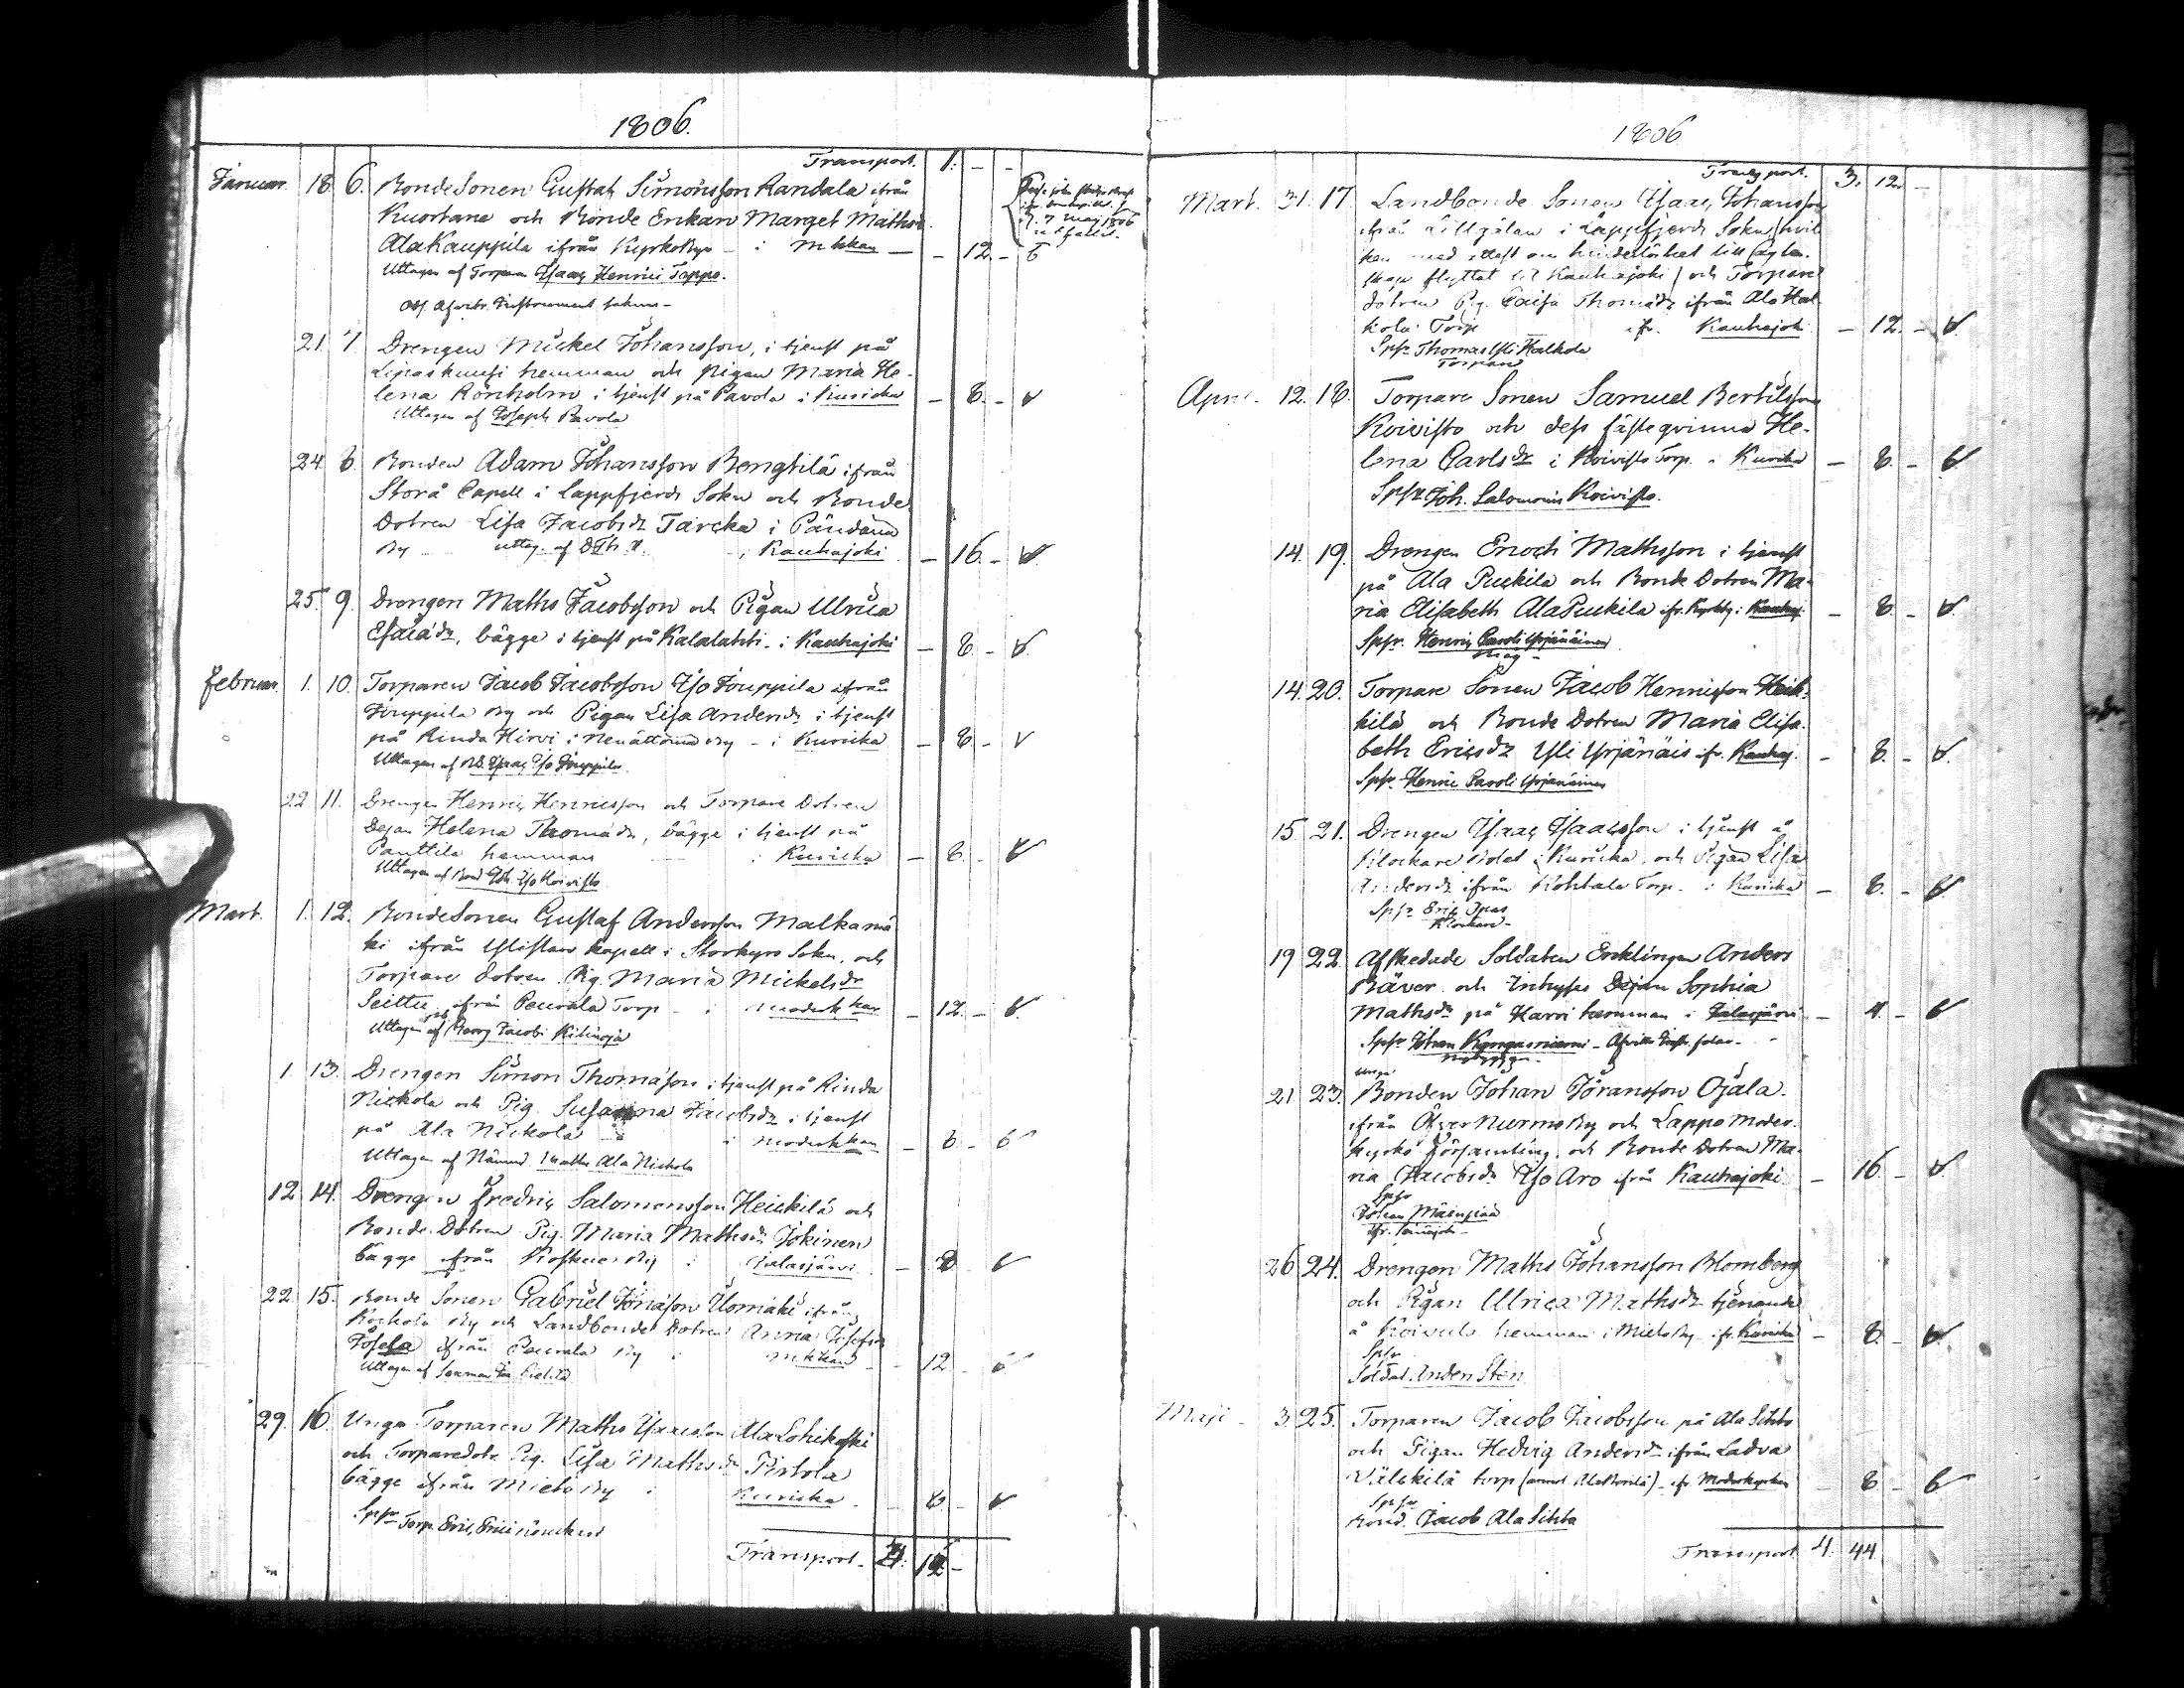 1806.
Transport. 1. - -
Januar. 18. 6. BondeSonen Gustaf Simonsson Randala ifrån
Kuortane och Bonde Enkan Marget Mathsd.
AlaKauppila ifrån KyrkoBye - i Mkkan - - 12. -
Uttagen af Torparen Isaac Henrici Toppo.
Obs. Instrument
21. 7. Drengen Mickel Johansson, i tjenst på
hemman och Pigan Maria He-
lena Rönholm i tjenst på Pavola i Kuricka - 8. -
Uttagen af Joseph Pavola
24. 8. Bonden Adam Johansson Bengtilä ifrån
Storå Capell i Lappfjerds Sokn och Bonde
Dotren Lisa Jacobsdr Tarcka i Päntäne
By uttag. af i Kauhajoki - 16. -
25. 9. Drengen Maths Jacobsson och Pigan Ulrica
Esaiædr, bägge i tjenst på Kalalahti - i Kauhajoki - 8. -
Februar. 1. 10. Torparen Jacob Jacobsson Iso Jouppila ifrån
Jouppila By och Pigan Lisa Andersdr i tjenst
på Rinda Hirvi i By - i Kuricka - 8. -
Uttagen af Isaac Iso Jouppila
22. 11. Drengen Henric Henricsson och Torpare Dotren
Dejan Helena Thomædr, bägge i tjenst på
Panttila hemman i Kuricka - 8. -
Uttagen af Iso Koivisto
Mart. 1. 12. BondeSonen Gustaf Andersson Malkamä
ki ifrån Ylistaro Kapell i Storkyro Sokn, och
Torpare dotren Pig. Maria Mickelsdr
Seittu ifrån Peurala Torp - i - 12. -
Uttagen af Georg Jacobi
1. 13. Drengen Simon Thomæson i tjenst på Rinda
Nickola och Pig. Susanna Jacobsdr i tjenst
på Ala Nickola i moderkkan - 8. -
Uttagen af Nämnd. Maths Ala Nickola
12. 14. Drengen Fredric Salomonsson Heickilä och
Bonde Dotren Pig. Maria Mathsdr Jokinen
bägge ifrån Koskue By i Jalasjärvi - 8
22. 15. Bonde Sonen Gabriel Jonæson Ilomäki ifrån
Kockola By och Landbonde Dotren Anna Josefsdr
ifrån Peurala By i Mkkan - 12.
Uttagen af
29. 16. Unga Torparen Maths Isaacsson AlaLohikoski
och Torparedotr. Pig. Lisa Mathsdr Pistola
bägge ifrån Mieto By i Kuricka - 8. -
Spsr Torp. Eric Erici
Transport. 3. 12. -
1806
Transport. 3. 12. -
Mart. 31. 17. Landbonde Sonen Isaac Johansson
ifrån Lillgålan i Lappfjerds Sokn (hvil
ken med attest om hinderlöshet till Ägten-
skap flyttat til Kauhajoki) och Torpare
dotren Pig. Caisa Thomædr ifrån Ala Hal
kola Torp ifr. Kauhajoki - 12. -
Spsr Thomas Yli Halkola
Torpare
April. 12. 18. Torpare Sonen Samuel Bertilsson
Koivisto och dess fästeqvinna He-
lena Carlsdr i Koivisto Torp. i Kurika - 8. -
Spsr Joh. Salomonis Koivisto.
14. 19. Drengen Enoch Mathsson i tjenst
på Ala Puckila och Bonde Dotren Ma-
ria Elisabeth AlaPuckila ifr. Kyrkby. i Kauhaj. - 8. -
Spsr. Henric Caroli Yrjänäinen
14. 20. Torpare Sonen Jacob Henricsson Heic-
kilä och Bonde Dotren Maria Elisa-
beth Ericsdr Yli Yrjänäis ifr. Kauhaj. - 8. -
Spsr. Henric Caroli Yrjänäinen
15. 21. Drengen Isaac Isaacsson i tjenst å
Klockare Bolet i Kuricka, och Pigan Lisa
Andersdr ifrån Kohtala Torp. i Kuricka - 8. -
Spsr Eric Ipas
Klockare
19. 22. Afskedade Soldaten Encklingen Anders
Bäver och Inhyses Dejan Sophia
Mathsdr på Harri hemman i Jalasjärvi - 4. -
Spsr Johan Kangasniemi -
Unga
21. 23. Bonden Johan Jöransson Ojala
ifrån Öfver Nurmo By och Lappo Moder-
kyrko Församling, och Bonde Dotren Ma-
ria Jacobsdr Iso Aro ifrån Kauhajoki - 16. -
Spsr
Johan Mäenpää
26. 24. Drengen Maths Johansson Blomberg
och Pigan Ulrica Mathsdr tjenande
å hemman i Mieto By ifr. Kurika - 8. -
Spsr
Soldat. Anders Sten
Maji - 3. 25. Torparen Jacob Jacobsson på Ala Sihto
och Pigan Hedvig Andersdr ifrån Ladva
Välckilä torp - ifr. Moderkyrkan - 8. -
Spsr
Bond. Jacob Ala Sihto
Transport. 4. 44